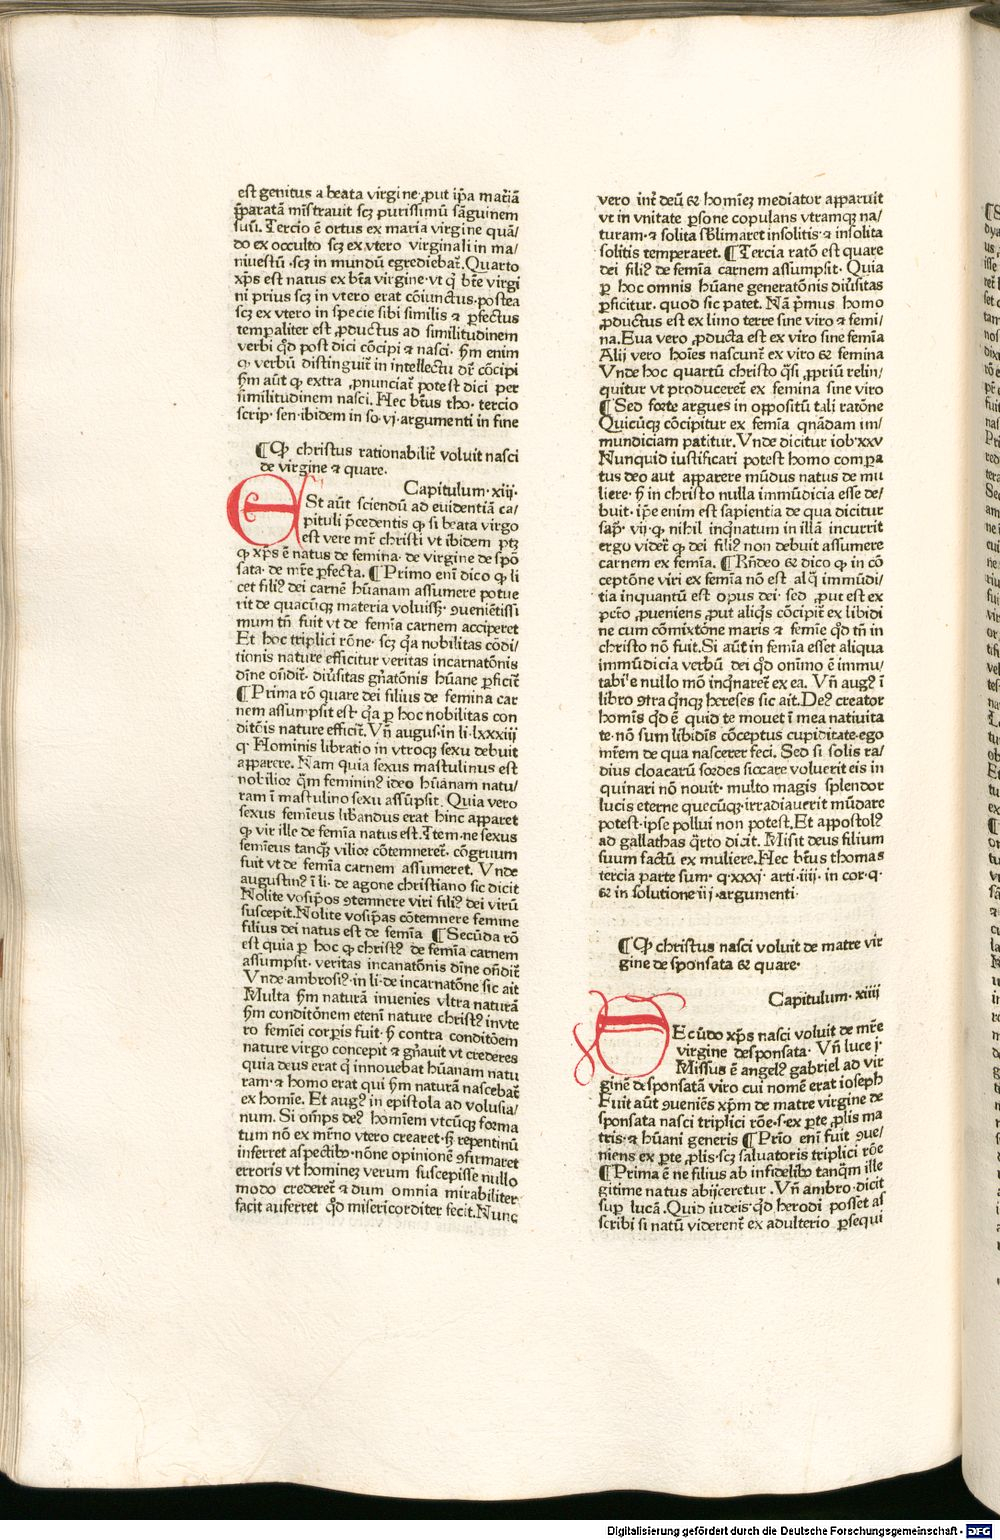 est genitus a beata virgine ꝓut ip̄a mat̄iā
p̄paratā mīstrauit scꝫ purissimū sāguinem
suū. Tercio ē ortus ex maria virgine quā/
do ex occulto scꝫ ex vtero virginali in ma/
nifestū ·scꝫ in mundū egrediebat̄. Quarto
xp̄s est natus ex bt̄a virgine·vt ꝗ bt̄e virgi
ni prius scꝫ in vtero erat cōiunctus·postea
scꝫ ex vtero in specie sibi similis ⁊ ꝑfectus
temꝑaliter est ꝓductus ad similitudinem
verbi qd̄ post dici cōcipi ⁊ nasci· hm̄ enim
ꝙ verbū distinguit̄ in intellectu dr̄ cōcipi
hm̄ aūt ꝙ extra ꝓnunciat̄ potest dici per
similitudinem nasci. Hec bt̄us tho· tercio
scrip· sen·ibidem in so·vj·argumenti in fine
¶ Ꝙ christus rationabilit̄ voluit nasci
de virgine ⁊ quare.
Capitulum·xiij·
ESt aūt sciendū ad euidentiā ca/
pituli p̄cedentis ꝙ si beata virgo
est vere mr̄ christi vt ibidem ptꝫ
ꝙ xp̄s ē natus de femina· de virgine de spō
sata· de mr̄e ꝑfecta. ¶ Primo enī dico ꝙ li
cet filiꝰ dei carnē hūanam assumere potue
rit de quacūqꝫ materia voluissꝫ· ꝯueniētissi
mum tn̄ fuit vt de femīa carnem acciperet
Et hoc triplici rōne· scꝫ qͣ nobilitas cōdi/
tionis nature efficitur veritas incarnatōnis
dīne on̄dit̄· diūsitas gn̄atōnis hūane ꝑficit̄
¶ Prima rō quare dei filius de femina car
nem assumpsit est· qͣ ꝑ hoc nobilitas con
ditōis nature efficit̄. Vn̄ augus·in li·lxxxiij
q· Hominis libratio in vtroqꝫ sexu debuit
apparere. Nam quia sexus masculinus est
nobilior qͣm femininꝰ ideo hūanam natu/
ram ī masculino sexu assūpsit. Quia vero
sexus femīeus libandus erat hinc apparet
ꝙ vir ille de femīa natus est. Item·ne sexus
femīeus tanqꝫ vilior cōtemneret̄· cōgruum
fuit vt de femīa carnem assumeret. Vnde
augustinꝰ ī li· de agone christiano sic dicit
Nolite vosip̄os ꝯtemnere viri filiꝰ dei virū
suscepit. Nolite vosip̄as cōtemnere femine
filius dei natus est de femīa ¶ Secūda rō
est quia ꝑ hoc ꝙ christꝰ de femīa carnem
assumpsit· veritas incanatōnis dīne on̄dit̄
Vnde ambrosiꝰ·in li·de incarnatōne sic ait
Multa hm̄ naturā inuenies vltra naturā
hm̄ conditōnem etenī nature christꝰ invte
ro femīei corꝑis fuit· sꝫ contra conditōem
nature virgo concepit ⁊ gn̄auit vt crederes
quia deus erat ꝗ innouebat hūanam natu
ram·⁊ homo erat qui hm̄ naturā nascebat̄
ex homīe. Et augꝰ in epistola ad volusia/
num. Si om̄ps deꝰ homīem vtcūqꝫ forma
tum nō ex mr̄no vtero crearet·sꝫ repentinū
inferret aspectibꝰ·nōne opinionē ꝯfirmaret
erroris vt hominez verum suscepisse nullo
modo crederet̄ ⁊ dum omnia mirabiliter
facit auferret qd̄ misericorditer fecit. Nunc
vero int̄ deū ⁊ homīez mediator apparuit
vt in vnitate ꝑsone copulans vtramqꝫ na/
turam·⁊ solita sb̄limaret insolitis·⁊ insolita
solitis temperaret. ¶ Tercia ratō est quare
dei filiꝰ de femīa carnem assumpsit· Quia
ꝑ hoc omnis hūane generatōnis diūsitas
ꝑficitur· quod sic patet. Nā p̄mus homo
ꝓductus est ex limo terre sine viro ⁊ femi/
na. Eua vero ꝓducta est ex viro sine femīa
Alij vero hoīes nascunt̄ ex viro ⁊ femina
Vnde hoc quartū christo qͣsi ꝓpriū relin/
quitur vt produceret̄ ex femina sine viro
¶ Sed forte argues in oppositū tali ratōne
Quicūqꝫ cōcipitur ex femīa qn̄dam im/
mundiciam patitur. Vnde dicitur iob·xxv
Nunquid iustificari potest homo compa
tus deo aut apparere mūdus natus de mu
liere· sꝫ in christo nulla immūdicia esse de/
buit· ip̄e enim est sapientia de qua dicitur
sap̄· vij· ꝙ nihil inqͥnatum in illā incurrit
ergo videt̄ ꝙ dei filiꝰ non debuit assumere
carnem ex femīa. ¶ Rn̄deo ⁊ dico ꝙ in cō
ceptōne viri ex femīa nō est alqͣ immūdi/
tia inquantū est opus dei· sed ꝓut est ex
pctō ꝓueniens ꝓut aliqͥs cōcipit̄ ex libidi
ne cum cōmixtōne maris ⁊ femīe qd̄ tn̄ in
christo nō fuit. Si aūt in femīa esset aliqua
immūdicia verbū dei qd̄ onīno ē immu/
tabile nullo mō inqͥnaret̄ ex ea. Vn̄ augꝰ ī
libro ꝯtra qͥnqꝫ hereses sic ait. Deꝰ creator
homīs qd̄ ē quid te mouet ī mea natiuita
te·nō sum libidīs cōceptus cupiditate·ego
mr̄em de qua nascerer feci. Sed si solis ra/
dius cloacarū sordes siccare voluerit eis in
quinari nō nouit· multo magis splendor
lucis eterne quecūqꝫ·irradiauerit mūdare
potest·ipse pollui non potest. Et appostolꝰ
ad gallathas qͣrto dicit. Misit deus filium
suum factū ex muliere. Hec bt̄us thomas
tercia parte sum· q·xxxj· arti·iiij· in cor·q·
⁊ in solutione iij·argumenti·
¶ Ꝙ christus nasci voluit de matre vir
gine desponsata ⁊ quare·
Capitulum·xiiij
SEcūdo xp̄s nasci voluit de mr̄e
virgine desponsata· Vn̄ luce j·
Missus ē angelꝰ gabriel ad vir
ginē desponsatā viro cui nomē erat ioseph
Fuit aūt ꝯueniēs xp̄m de matre virgine de
sponsata nasci triplici rōe·s·ex ꝑte ꝓlis ma
tris·⁊ hūani generis ¶ Prīo enī fuit ꝯue/
niens ex ꝑte ꝓlis·scꝫ saluatoris triplici rōe
¶ Prima ē ne filius ab infidelibꝰ tanqͣm ille
gitime natus abijceretur. Vn̄ ambro·dicit
suꝑ lucā. Quid iudeis·qd̄ herodi posset as
scribi si natū viderent̄ ex adulterio ꝑsequi
Digitalisierung gefördert durch die Deutsche Forschungsgemeinschaft - DFG